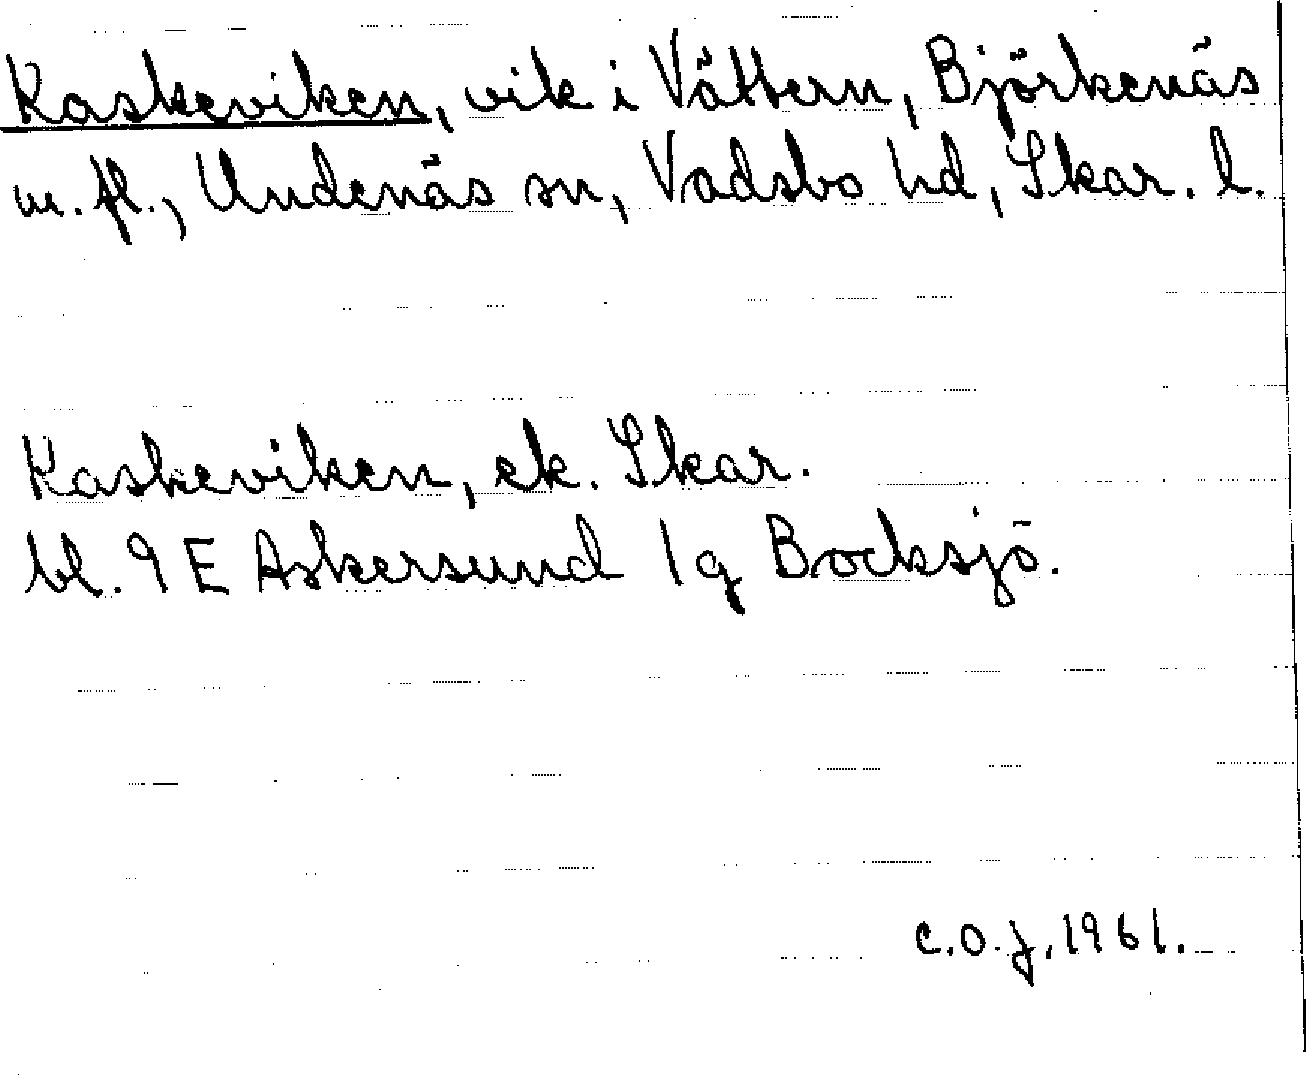 Kaskeviken, vik i Vättern, Björkenäs
m. fl., Undenäs sn, Vadsbo hd, Skar. l.
Kaskeviken, ek. Skar.
bl. 9 E Askersund 1g Bocksjö.
C.O.J. 1961.